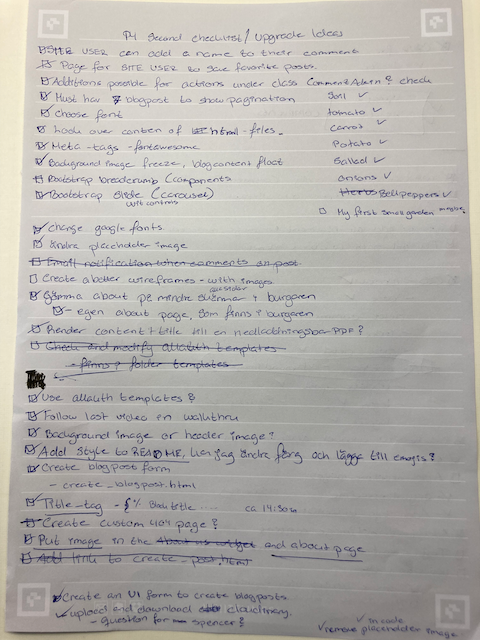 P4 Second checklist/upgrade Ideas
SITE USER can add a name to their comment
Page for SITE USER to save favorite posts.
Additions possible for actions under class CommentAdmin? check
Must hav 7 blogpost to show pagination
Soil ✓
Choose font
tomato ✓
Look over conten of html-files.
Carrot ✓
Meta-tags - fontawesome
Potato ✓
Background image freeze, blogcontent float
Sallad ✓
Bootstrap breadcrumb (components
onions ✓
Bootstrap Slide (carousel)
with controls
Bellpeppers ✓
My first small garden
change google fonts.
ändra placeholder image
Email notification when comments on post
Create a better wireframes - with images
Gömma about på mindre skärmar i burgaren
- egen about page, som finns i burgaren
Render content + title till en nedladdningsbar PDF?
Check and modify allauth templates
- finns i folder templates
Use allauth templates?
Follow last video in walkthru
Background image or header image?
Add style to README, kan jag ändra färg och lägga till emojis?
Create blogpost form
- create_blogpost.html
Title-tag - {% Block title ..... ca 14:30
Create custom 404 page?
Put image in the about us widget and about page
Add link to create_post.html
Create an UI form to create blogposts.
✓ upload and download cloudinary.
- Question for spencer?
✓ in code
✓ remove placeholder image